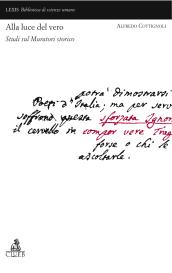 LEXIS Biblioteca di scienze umane
Alla luce del vero
ALFREDO COTTIGNOLI
Studi sul Muratori storico
potrà dimostrarsi
Poeti d'Italia; ma per serv
questa sforzata Ignor
il cervello in compor vere Trag
forse o chi le
ascoltarle.
CLUEB